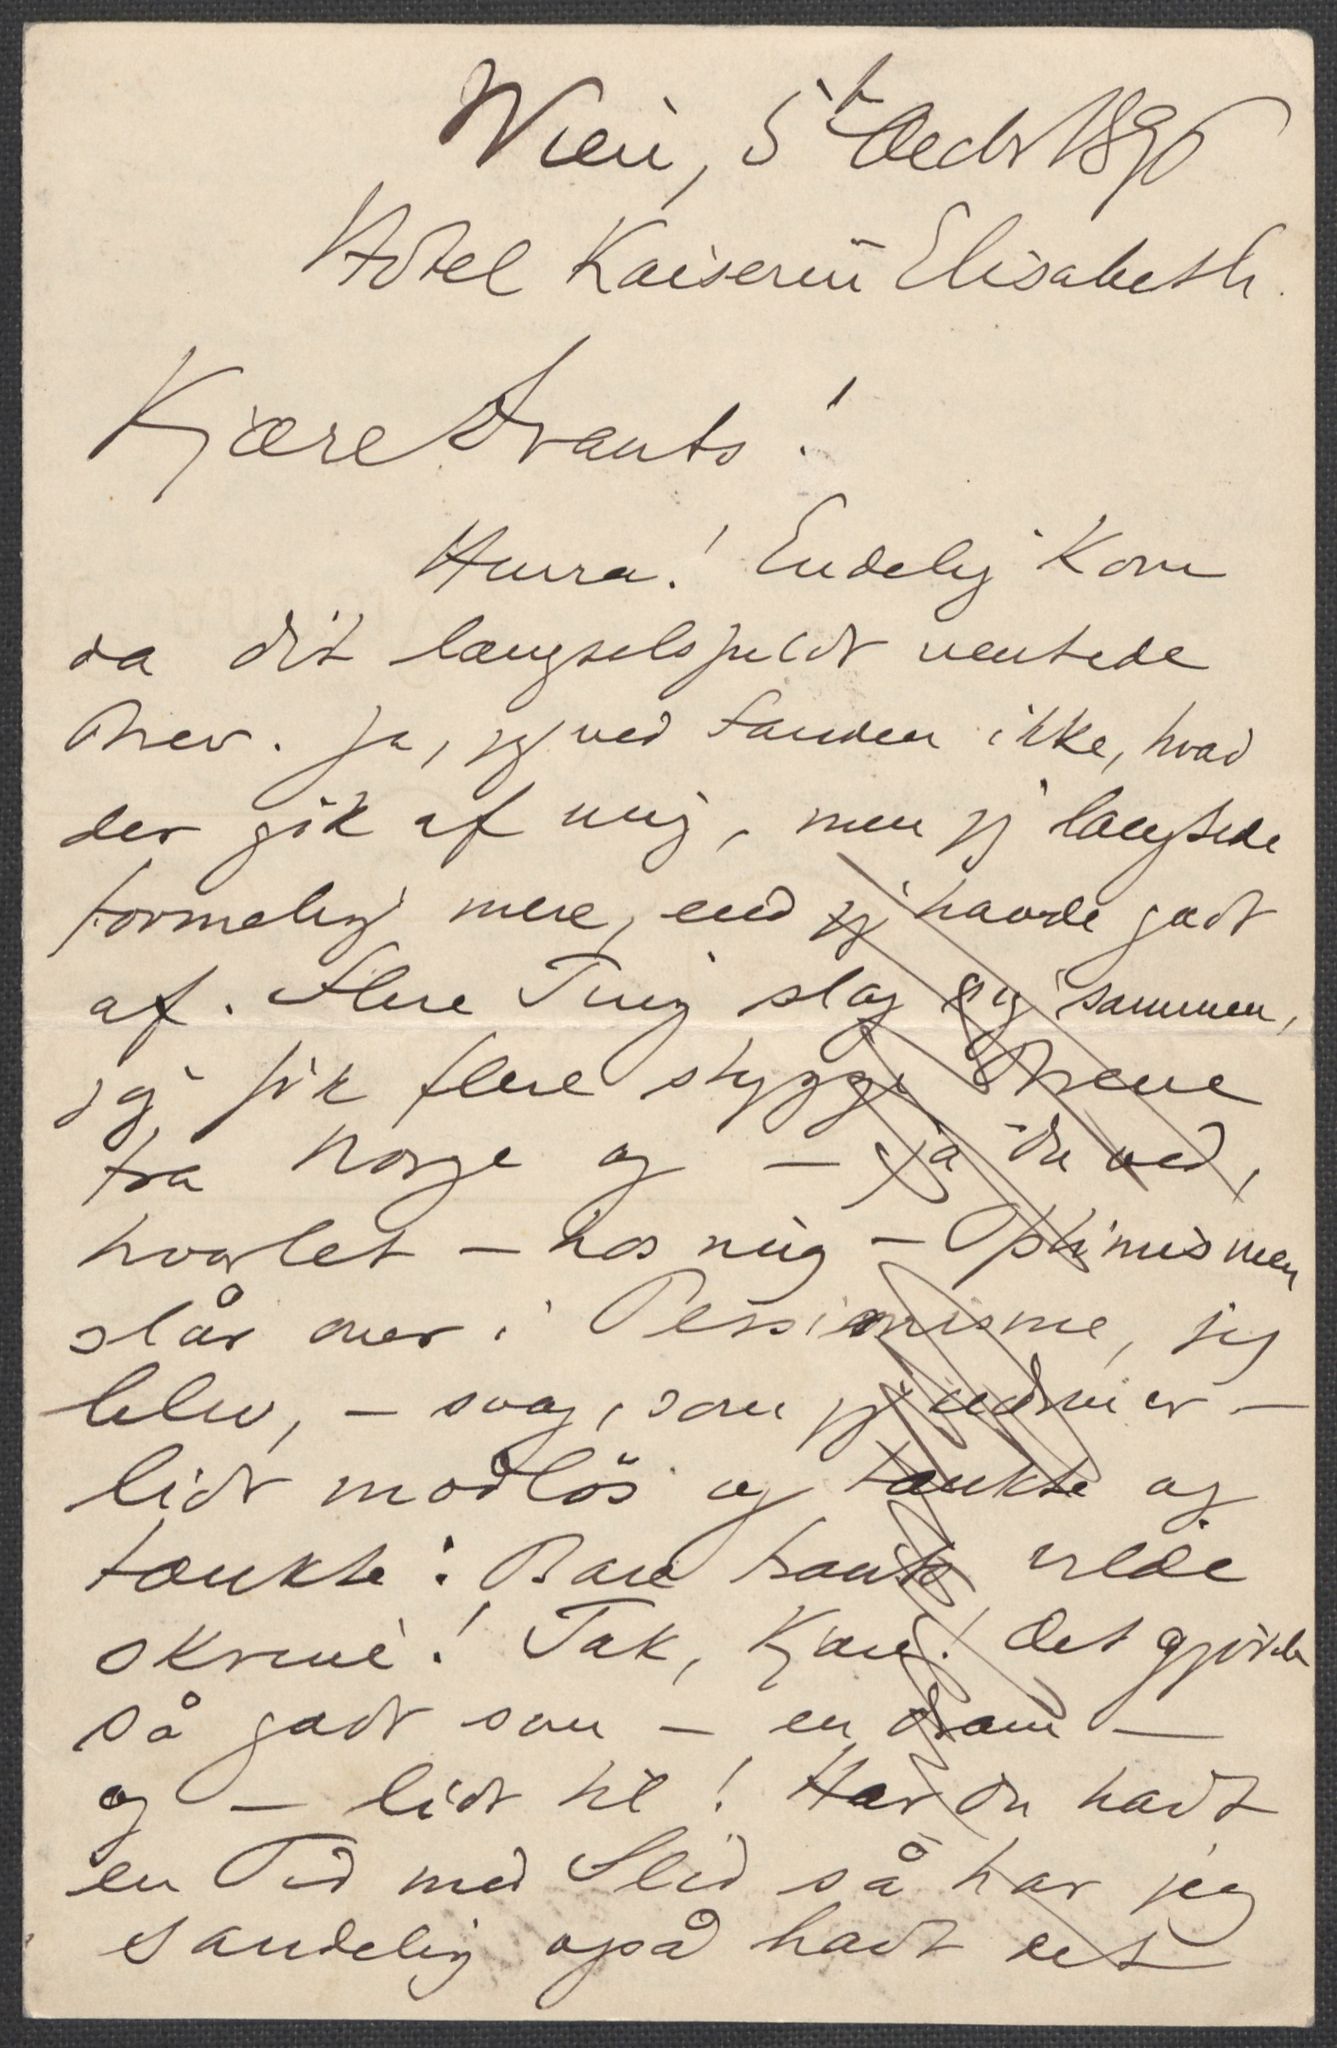 Wien, 5te Decbr 1896
Hotel Kaiserin Elisabeth.
Kjære Frants!
Hurra! Endelig kom
da dit længselsfuldt ventede
Brev. Ja, jeg ved Fanden ikke, hvad
der gik af mig, men jeg længtede
formelig mere, end jeg havde godt
af. Flere Ting slog sig sammen,
jeg fik flere stygge Breve
fra Norge og – ja du ved,
hvorlet – hos mig – Optimismen
slår over i Pessimisme, jeg
blev, – svag, som jeg endnu er –
lidt modløs og tænkte og
tænkte: Bare Frants vilde
skrive! Tak, Kjære! Det gjorde
så godt som – en Dram –
og – lidt til! Har du havt
en Tid med Slid så har jeg
sandelig også havt det